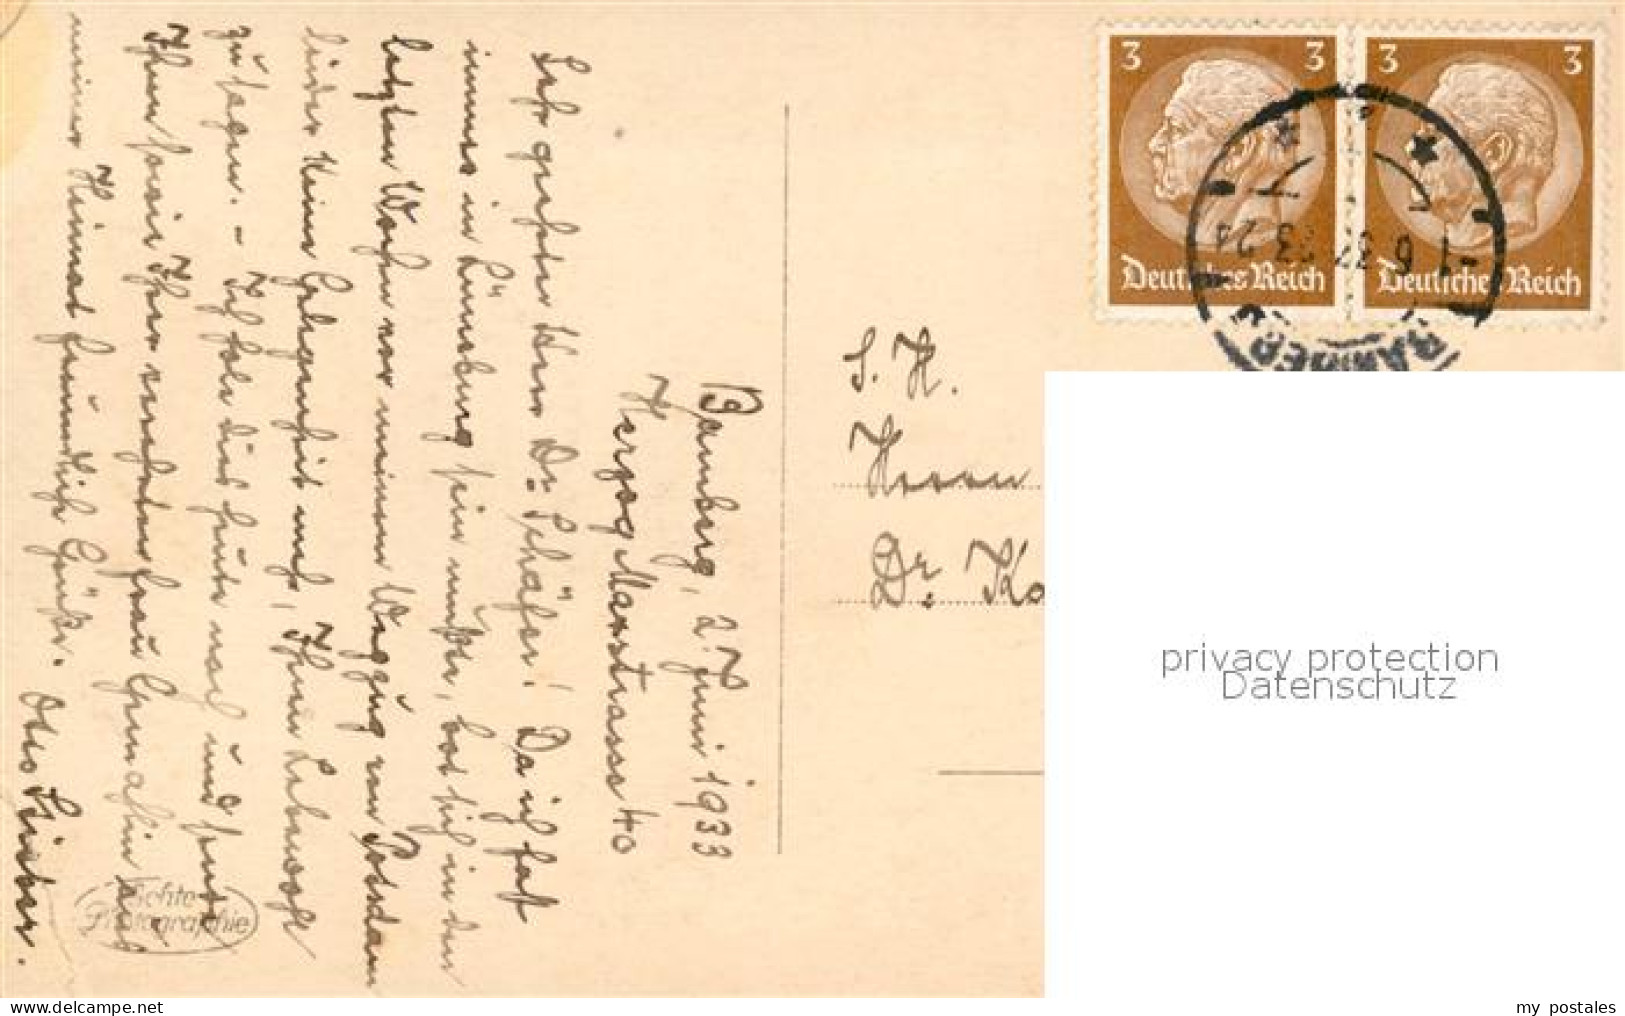 Bamberg, 2. Juni 1933
Herzog Maxstrasse 40
Sehr geehrter Herr Dr. Schäfer! Da ich fast
immer in Lüneburg sein mußte, bot sich in den
letzten Wochen vor meinem Wegzug von Potsdam
leider keine Gelegenheit mehr, Ihnen Lebewohl
zu sagen. - Ich hole dies heute nach und sende
Ihnen sowie Ihrer verehrten Frau Gemahlin aus
meiner Heimat freundliche Grüße. Otto
Echte
Photographie
S. H.
Herrn
Dr. Ko
3 3
Deutsches Reich
3 3
Deutsches Reich
BAMBERG
privacy protection
Datenschutz
www.ansichtskartenversand.com
my postales